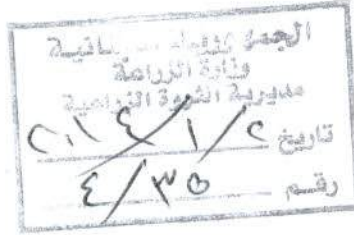 الجمهورية اللبنانية
وزارة الزراعة
مديرية الثروة الزراعية
تاريخ ٢٠١٤/١/٢
رقم ٤/٣٥